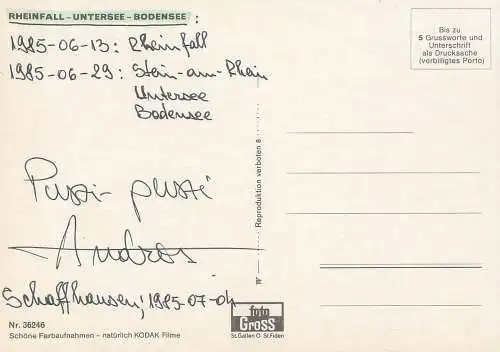 RHEINFALL - UNTERSEE - BODENSEE :
1985-06-13: Rheinfall
1985-06-29: Stein-am-Rhein
Untersee
Bodensee
Puszi-puszi
Andros
Schaffhausen, 1985-07-04
Nr. 36246
Schöne Farbaufnahmen – natürlich KODAK Filme
Reproduktion verboten
foto
Gross
St.Gallen O St.Fiden
Bis zu
5 Grussworte und
Unterschrift
als Drucksache
(verbilligtes Porto)